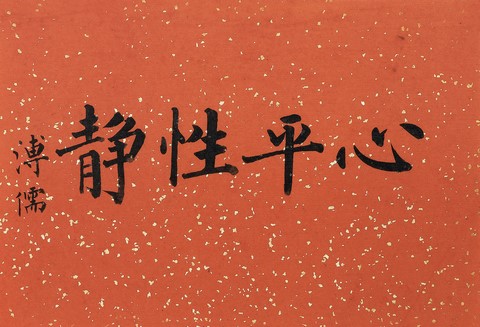 心平性静
溥儒